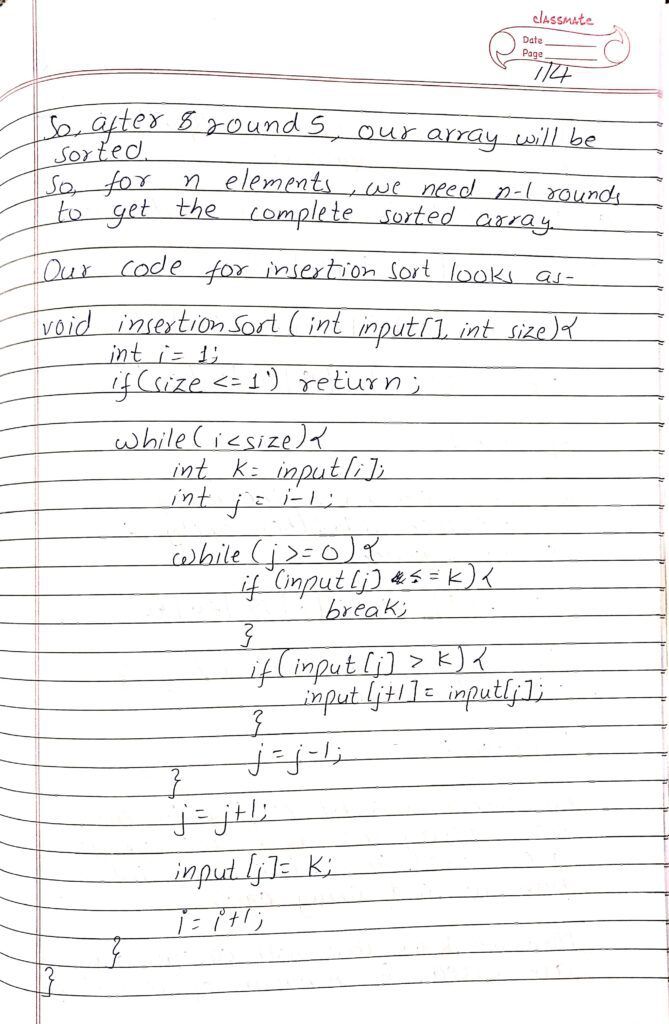 classmate
Date
Page
1/4
So, after 8 rounds, our array will be
sorted.
So, for n elements, we need n-1 rounds
to get the complete sorted array.
Our code for insertion sort looks as-
void insertionSort (int input[], int size){
int i = 1;
if(size <= 1) return;
while(i<size){
int k = input[i];
int j = i-1;
while (j >= 0) {
if (input[j] <= k) {
break;
}
if(input[j] > k) {
input[j+1] = input[j];
}
j = j-1;
}
j = j+1;
input[j] = k;
i = i+1;
}
}